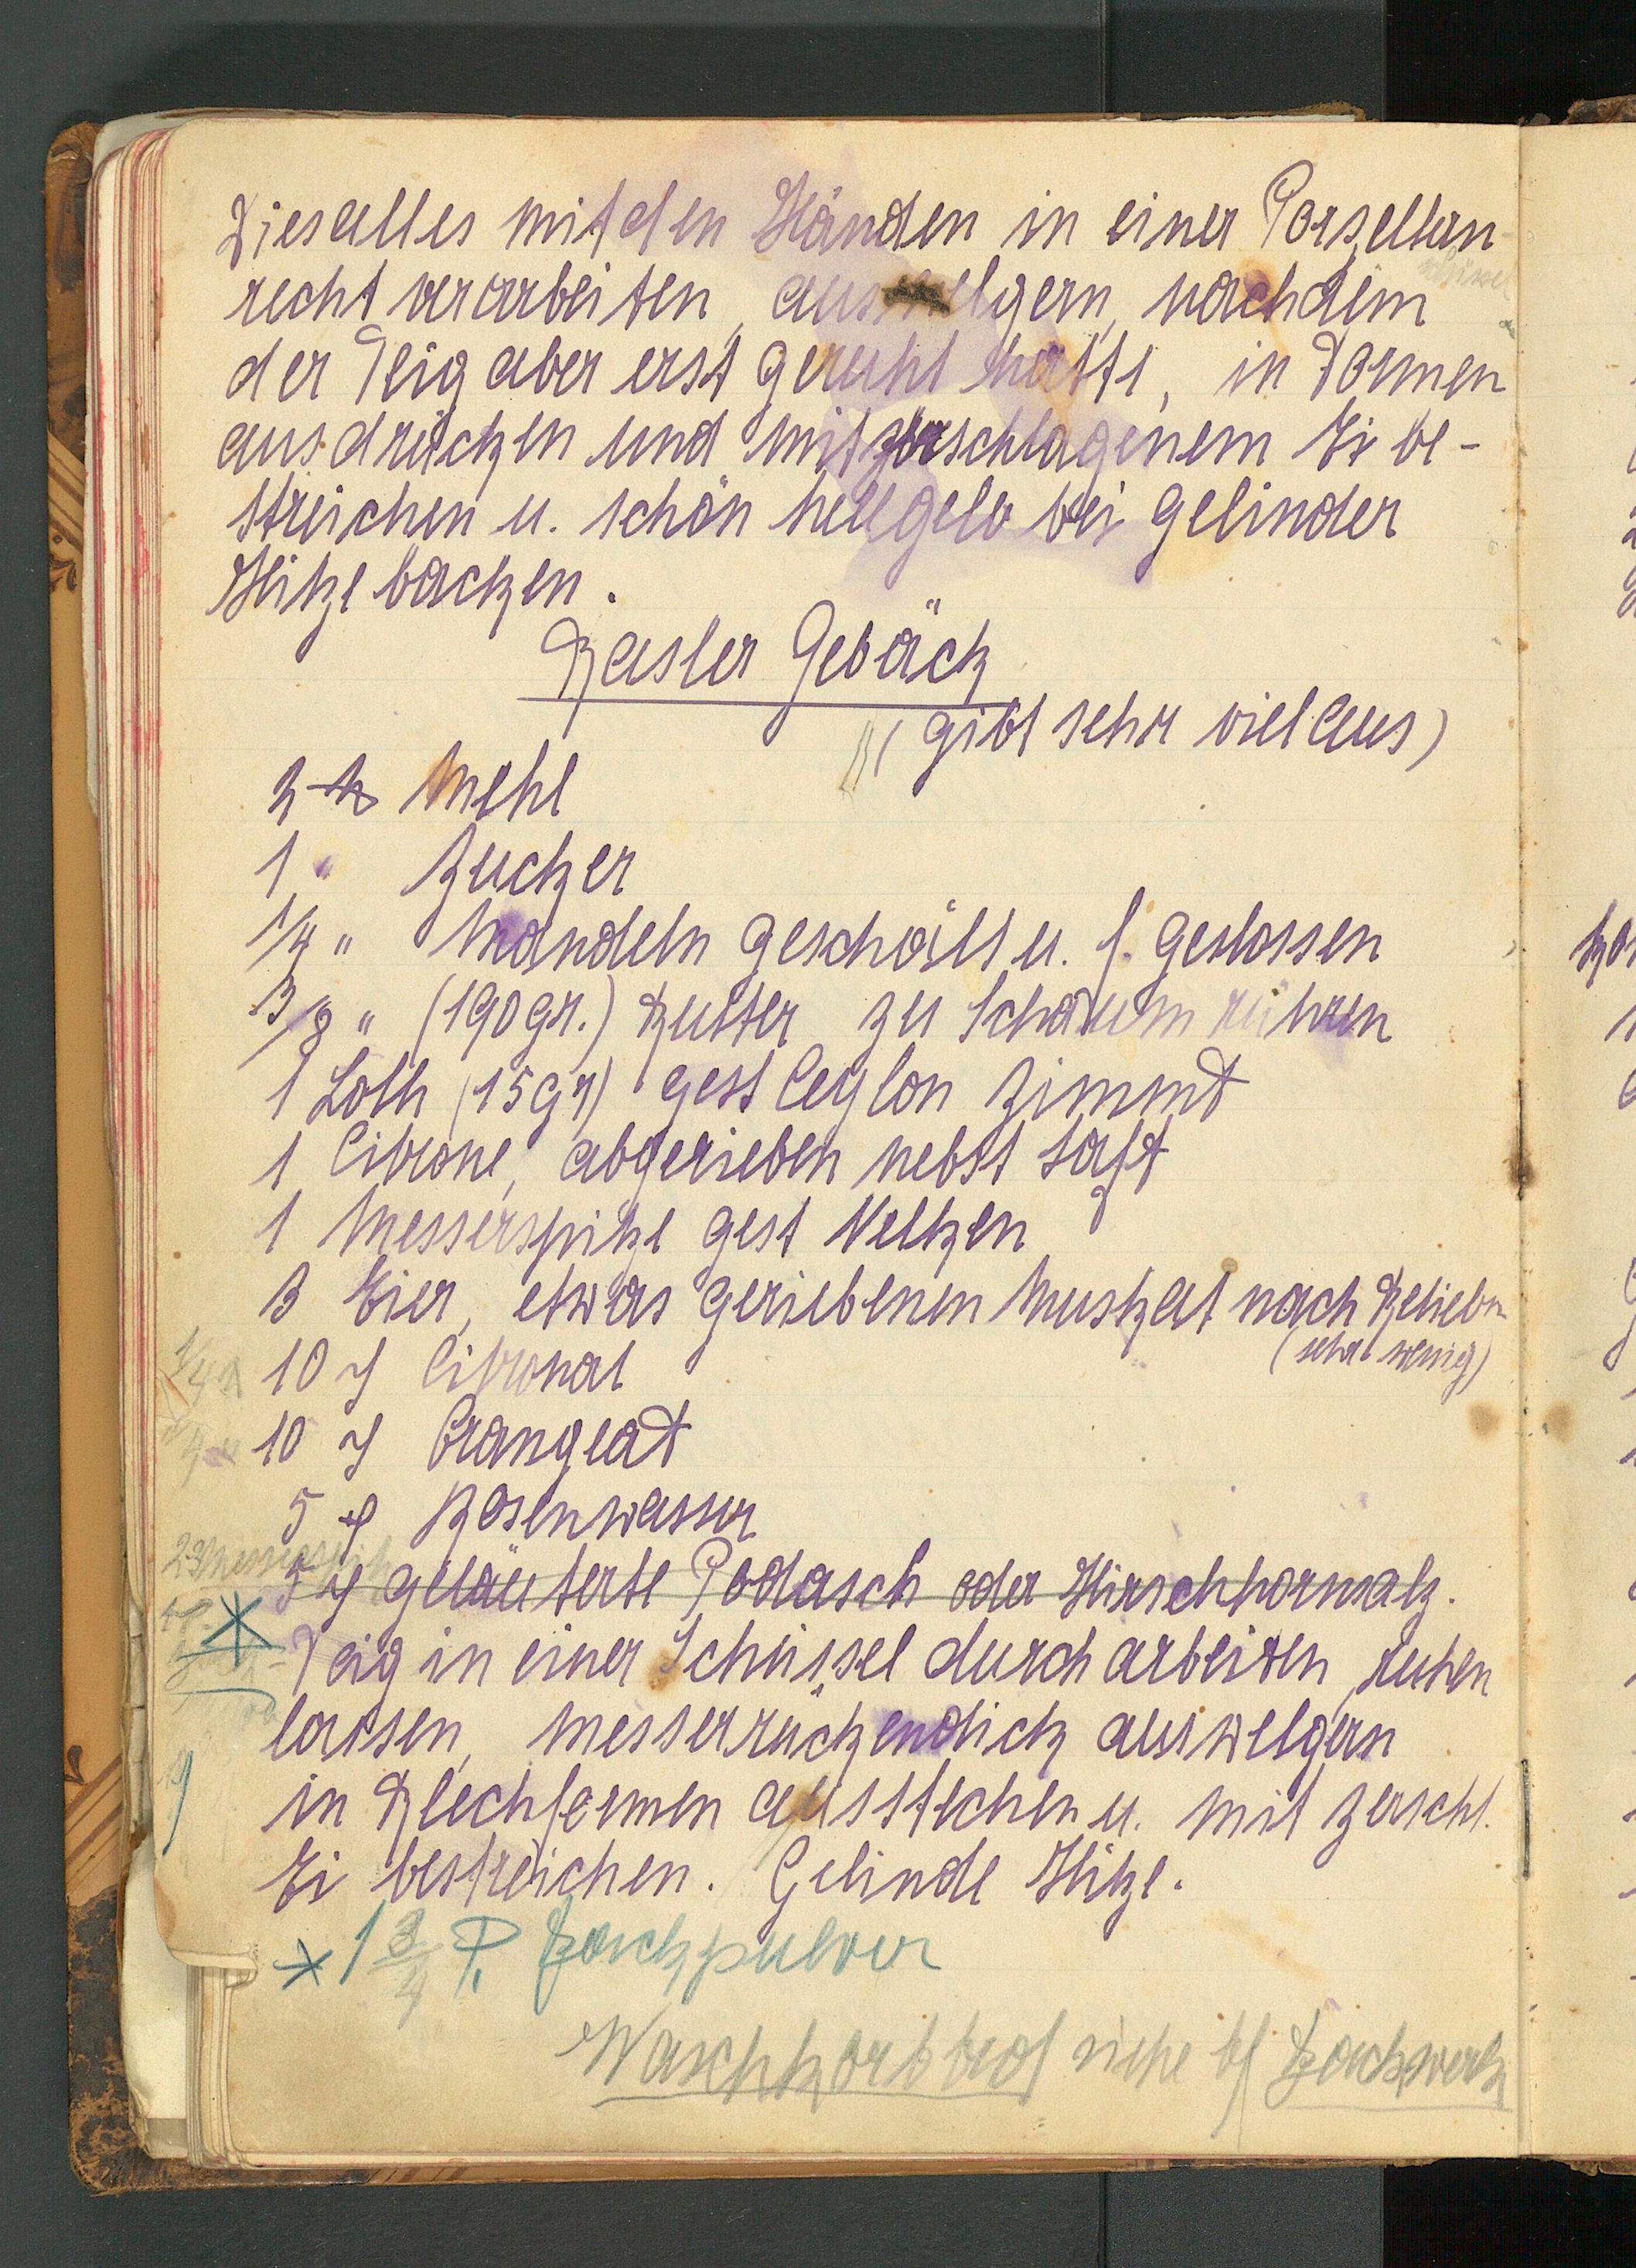 Dies alles mit den Händen in einer Porzellan-
schüssel
recht verarbeiten, auswelgern, nachdem
der Teig aber erst geruht hatte, in Formen
ausdrücken und mit zerschlagenem Ei be-
streichen u. schön hellgelb bei gelinder
Hitze backen.
Basler Gebäck
(gibt sehr viel aus)
2 ℔ Mehl
1 " Zucker
1/4 " Mandeln geschält u. f. gestossen
3/8 " (190 gr.) Butter zu Schaum rühren
1 Loth (15 gr) gest Ceylon Zimmt
1 Citrone, abgerieben nebst Saft
1 Messerspitze gest Nelken
3 Eier, etwas geriebenen Muskat nach Belieben
(sehr wenig)
1/4 ℔ 10 ₰ Citronat
10 ₰ Orangeat
5 ₰ Rosenwasser
5 ₰ geläuterte Podasch oder Hirschhornsalz.
* Teig in einer Schüssel durcharbeiten, ruhen
lassen, messerrückendick auswelgern
in Blechformen ausstechen u. mit zerschl.
Ei bestreichen. Gelinde Hitze.
* 1 3/4 P. Backpulver
Waschkorbbrot siehe bf Backwerk